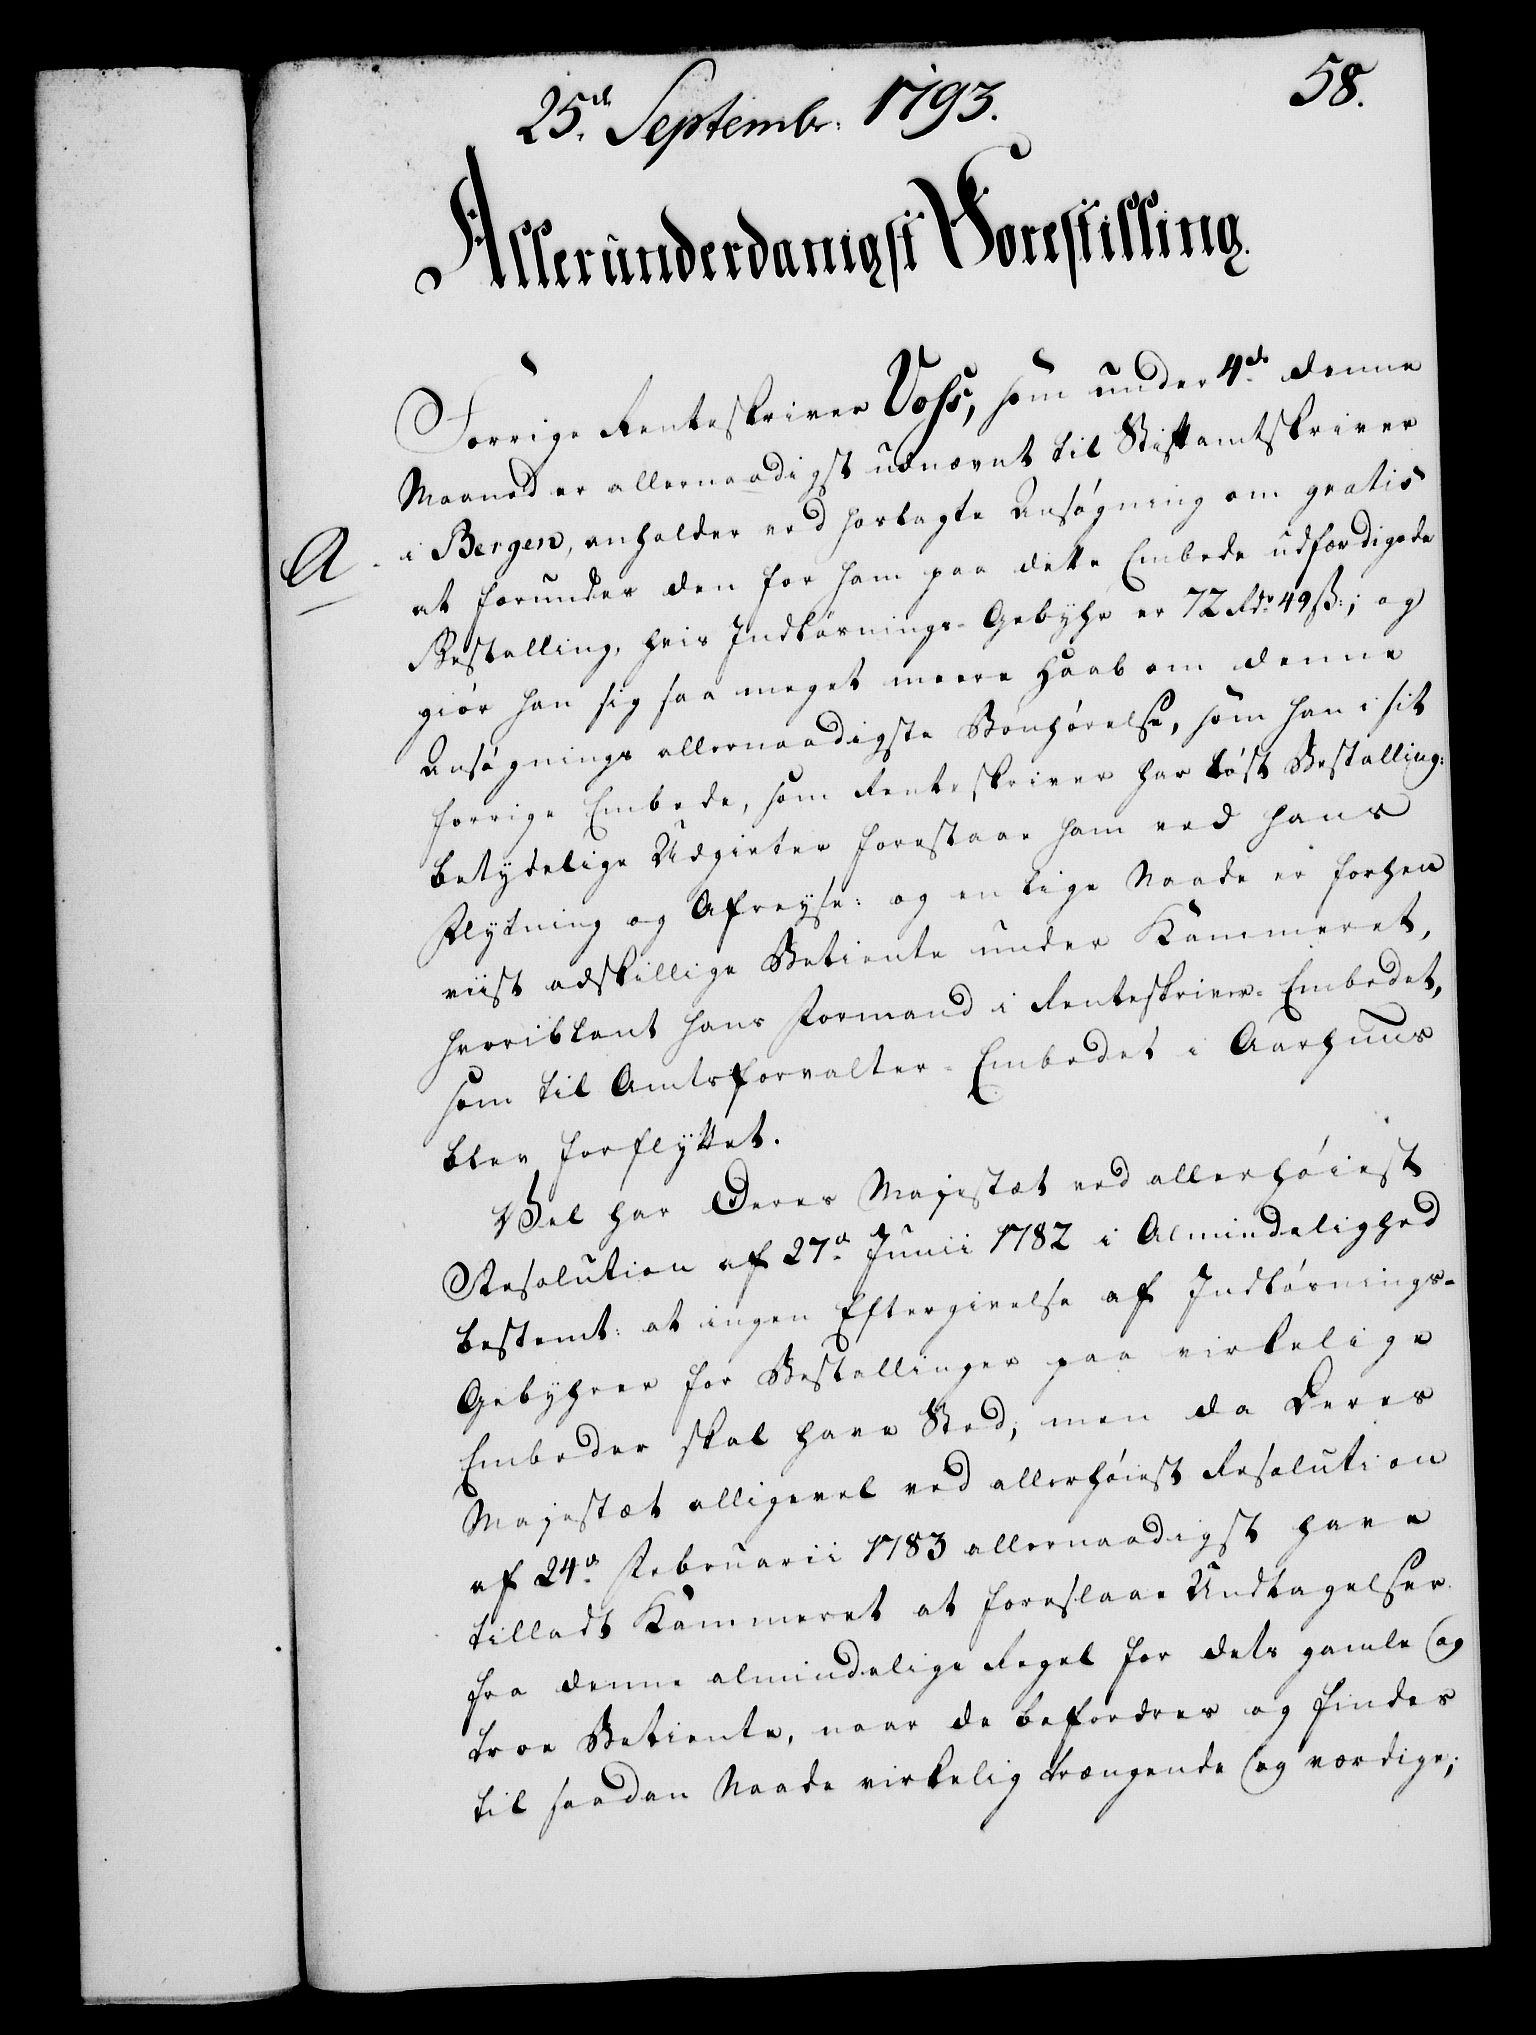 25d. Septembr: 1793.
58.
Allerunderdanigst Forestilling.
Forrige Renteskriver Voss, som under 4de denne
Maaned er allernaadigst udnævnt til Stiftamtskriver
A
i Bergen, anholder ved hoslagte Ansøgning om gratis
at forundes den for ham paa dette Embede udfærdigede
Bestalling, hvis Indløsnings-Gebyhr er 72 Rdr 49 ß:; og
giør han sig saa meget meere Haab om denne
Ansøgnings allernaadigste Bønhørelse, som han i sit
forrige Embede, som Renteskriver har løst Bestalling:
betydelige Udgivter forestaae ham ved hans
Flytning og Afreyse: og en lige Naade er forhen
viist adskillige Betiente under Kammeret,
hvoriblant hans Formand i Renteskriver-Embedet,
som til Amtsforvalter-Embedet i Aarhuus
blev forflyttet.
Vel har Deres Majestæt ved allerhøiest
Resolution af 27a Junii 1782 i Almindelighed
bestemt: at ingen Eftergivelse af Indløsnings-
Gebyhrer for Bestallinger paa virkelige
Embeder skal have Sted; men da Deres
Majestæt alligevel ved allerhøiest Resolution
af 24a Februarii 1783 allernaadigst have
tilladt Kammeret at foreslaae Undtagelser
fra denne almindelige Regel for dets gamle og
troe Betiente, naar de befordres og findes
til saadan Naade virkelig trængende og værdige;